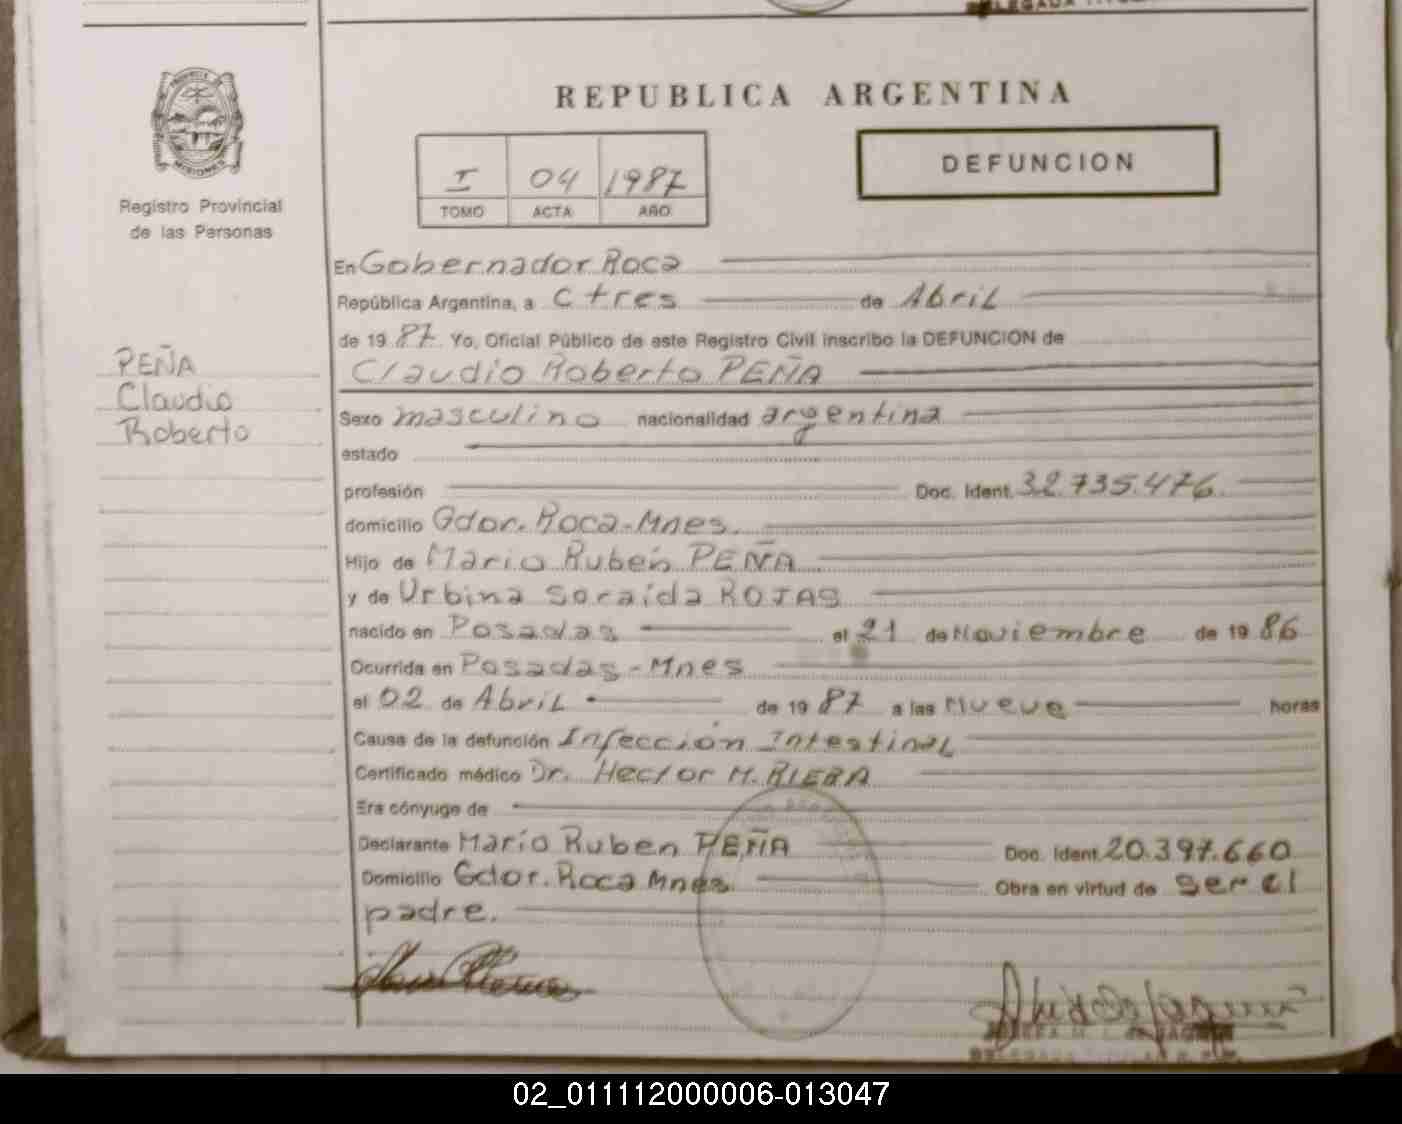 REPUBLICA ARGENTINA
DEFUNCION
I 04 1987
TOMO ACTA AÑO
MISIONES
Registro Provincial
de las Personas
PEÑA
Claudio
Roberto
En Gobernador Roca
República Argentina, a tres de Abril
de 1987 Yo, Oficial Público de este Registro Civil inscribo la DEFUNCION de
Claudio Roberto PEÑA
Sexo masculino nacionalidad argentina
estado
profesión Doc. Ident. 32.735.476.
domicilio Gdor. Roca-Mnes.
Hijo de Mario Rubén PEÑA
y de Urbina Soraida ROJAS
nacido en Posadas el 21 de Noviembre de 1986
Ocurrida en Posadas-Mnes
el 02 de Abril de 1987 a las Nueve horas
Causa de la defunción Infección Intestinal
Certificado médico Dr. Hector M. RIERA
Era cónyuge de
Declarante Mario Ruben PEÑA Doc. Ident. 20.397.660
Domicilio Gdor. Roca Mnes Obra en virtud de ser el
padre.
02_011112000006-013047